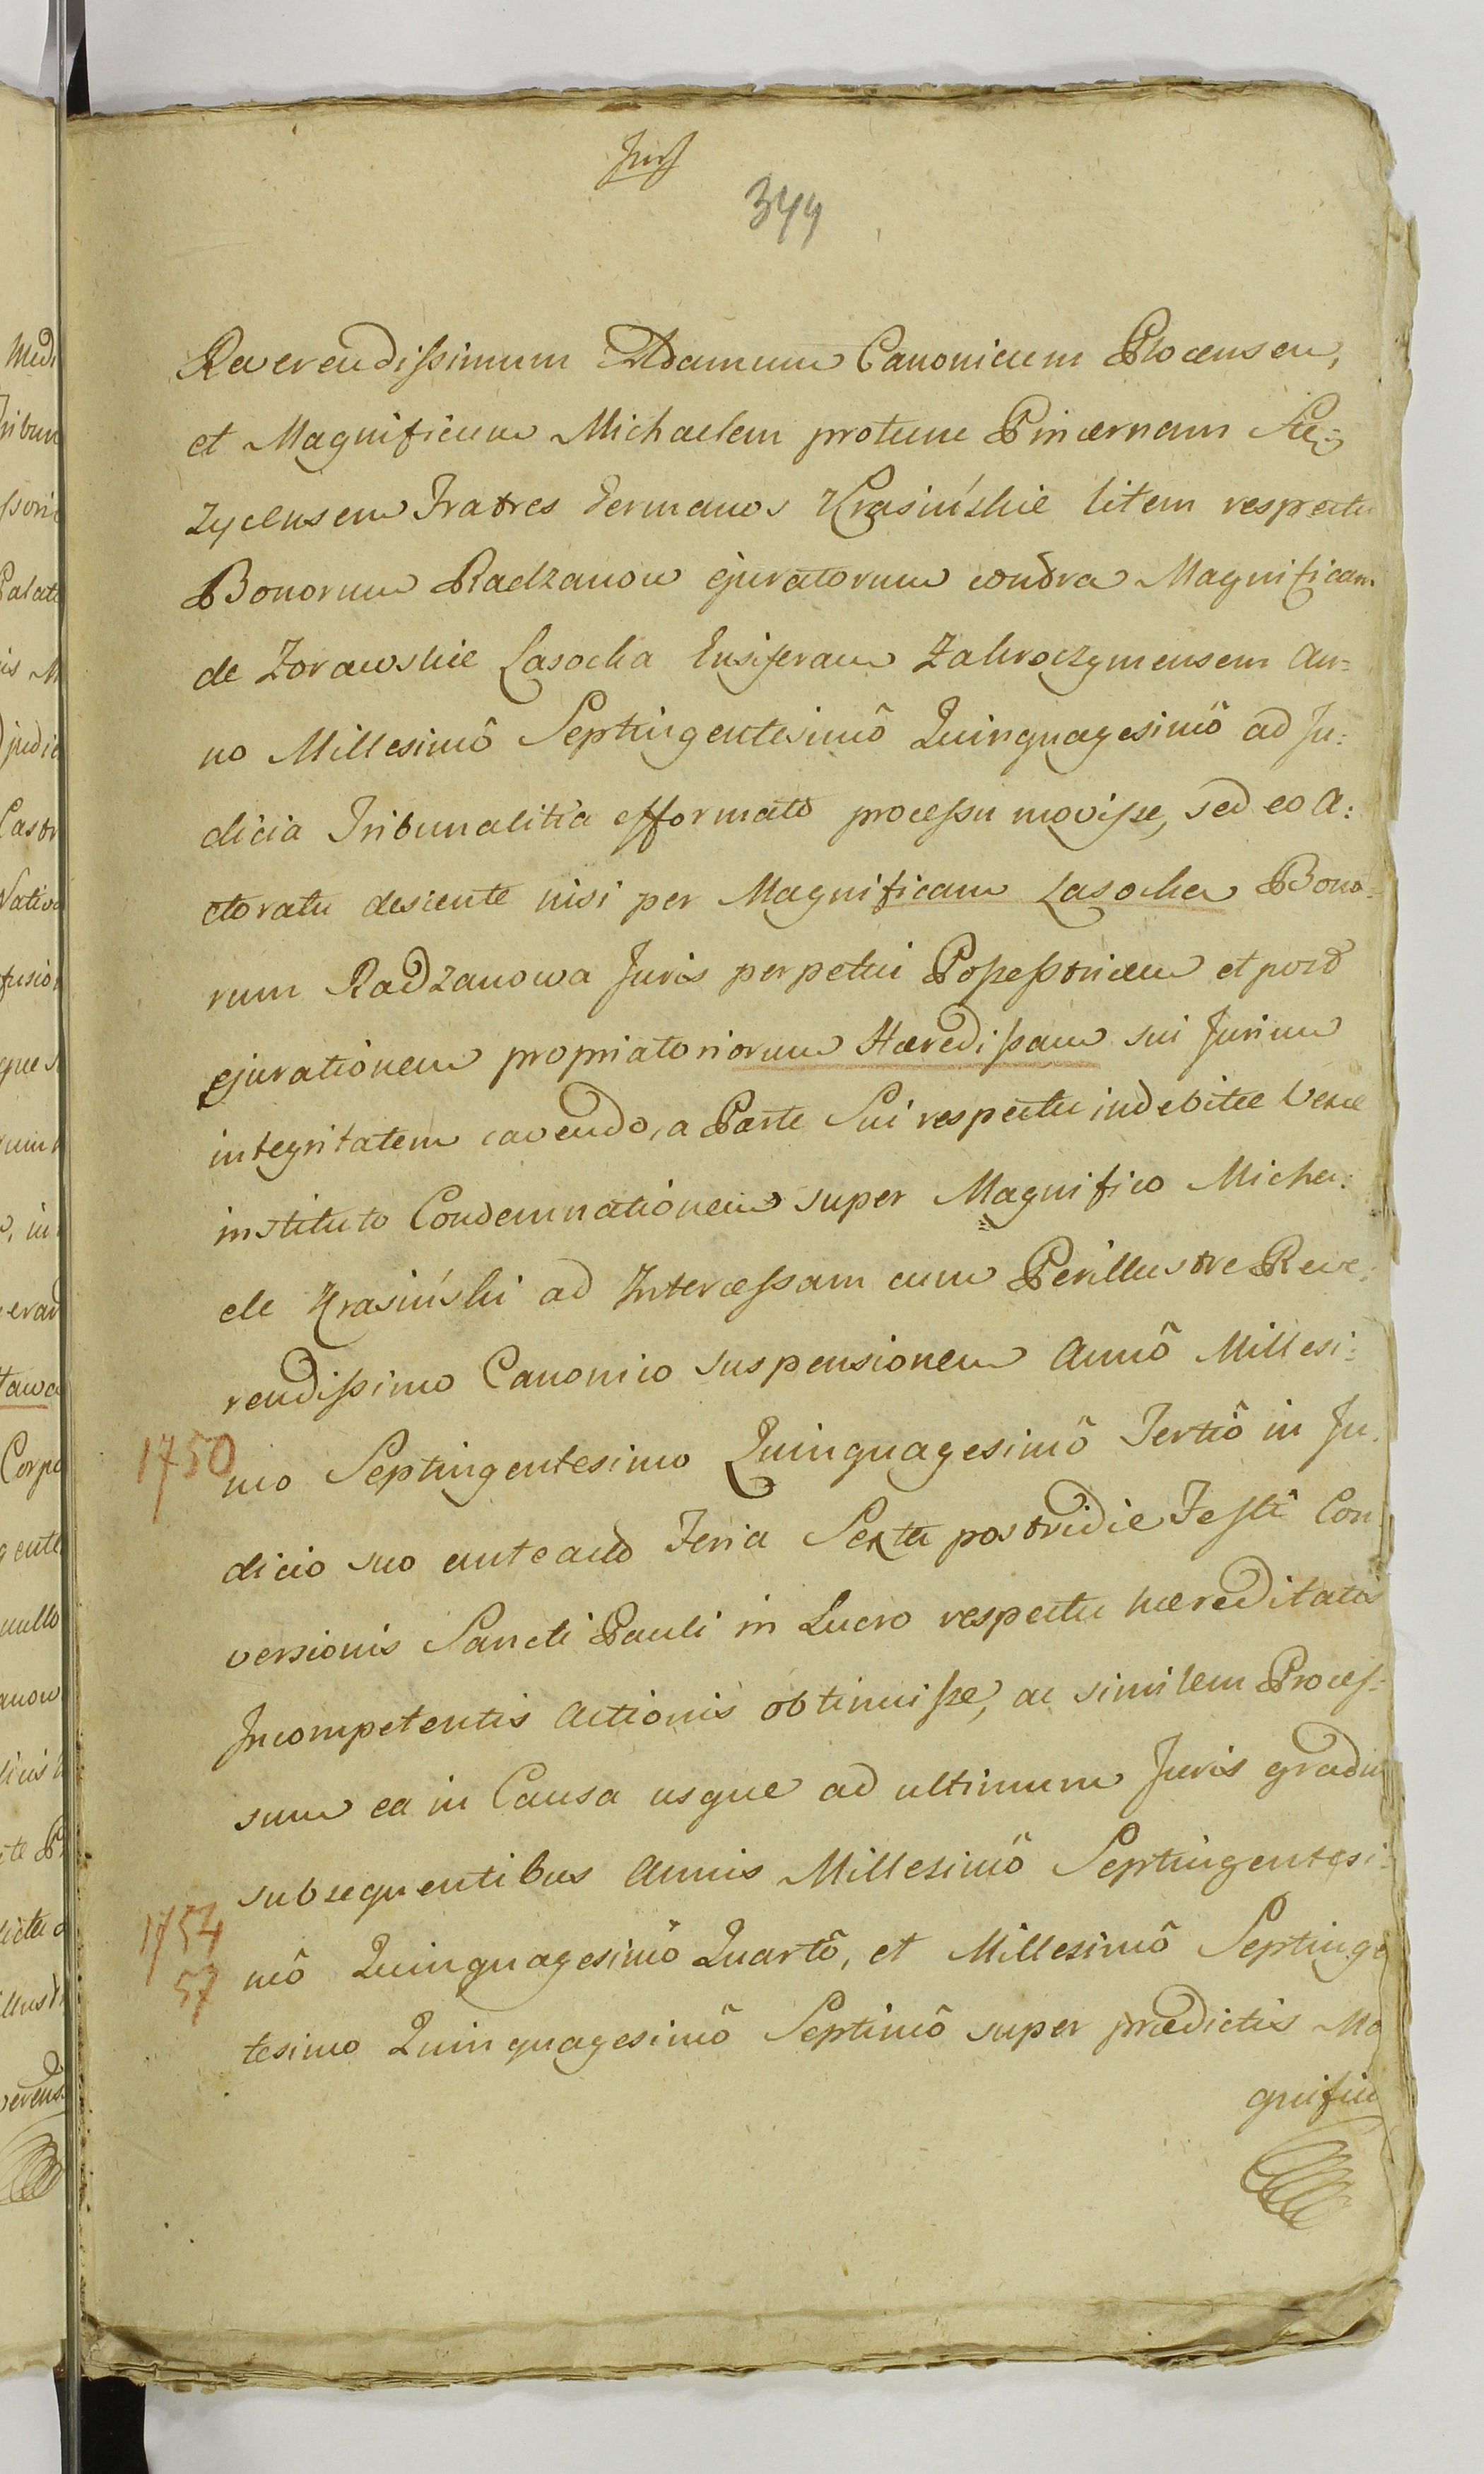 349
Reverendißimum Adamum Canonicum Plocensem,
et Magnificum Michaelem protunc Pincernam Stę-
zycensem Fratres Germanos Krasińskie litem respectu
Bonorum Radzanow ejuratorum contra Magnificam
de Zorawskie Lasocka Ensiferam Zakroczymensem An-
no Millesimô Septingentesimô Quinquagesimô ad Ju:
dicia Tribunalitia efformato proceßu moviße, sed eo A:
ctoratu desiente nisi per Magnificam Lasocka Bono-
rum Radzanowa Juris perpetui Poßeßoricem et post
ejurationem propriatoriorum Hæredißam sui Jurium
integritatem cavendo, a Parte Sui respectu indebitæ Vexæ
instituto Condemnationem super Magnifico Micha:
ele Krasiński ad Interceßam cum Perillustre Reve:
rendißimo Canonico suspensionem Annô Millesi:
1750
mo Septingentesimo Quinquagesimô Tertiô in Ju:
dicio suo ante acto Feria Sexta postridie Festi Con
versionis Sancti Pauli in Lucro respectu hæreditatis
Incompetentis Actionis obtinuiße, ac similem Proceß-
sum ea in Causa usque ad ultimum Juris gradum
subsequentibus Annis Millesimô Septingentesi:
1754
mô Quinquagesimô Quartô, et Millesimô Septinge
57
tesimo Quinquagesimô Septimô super prædictis Ma
gnificis